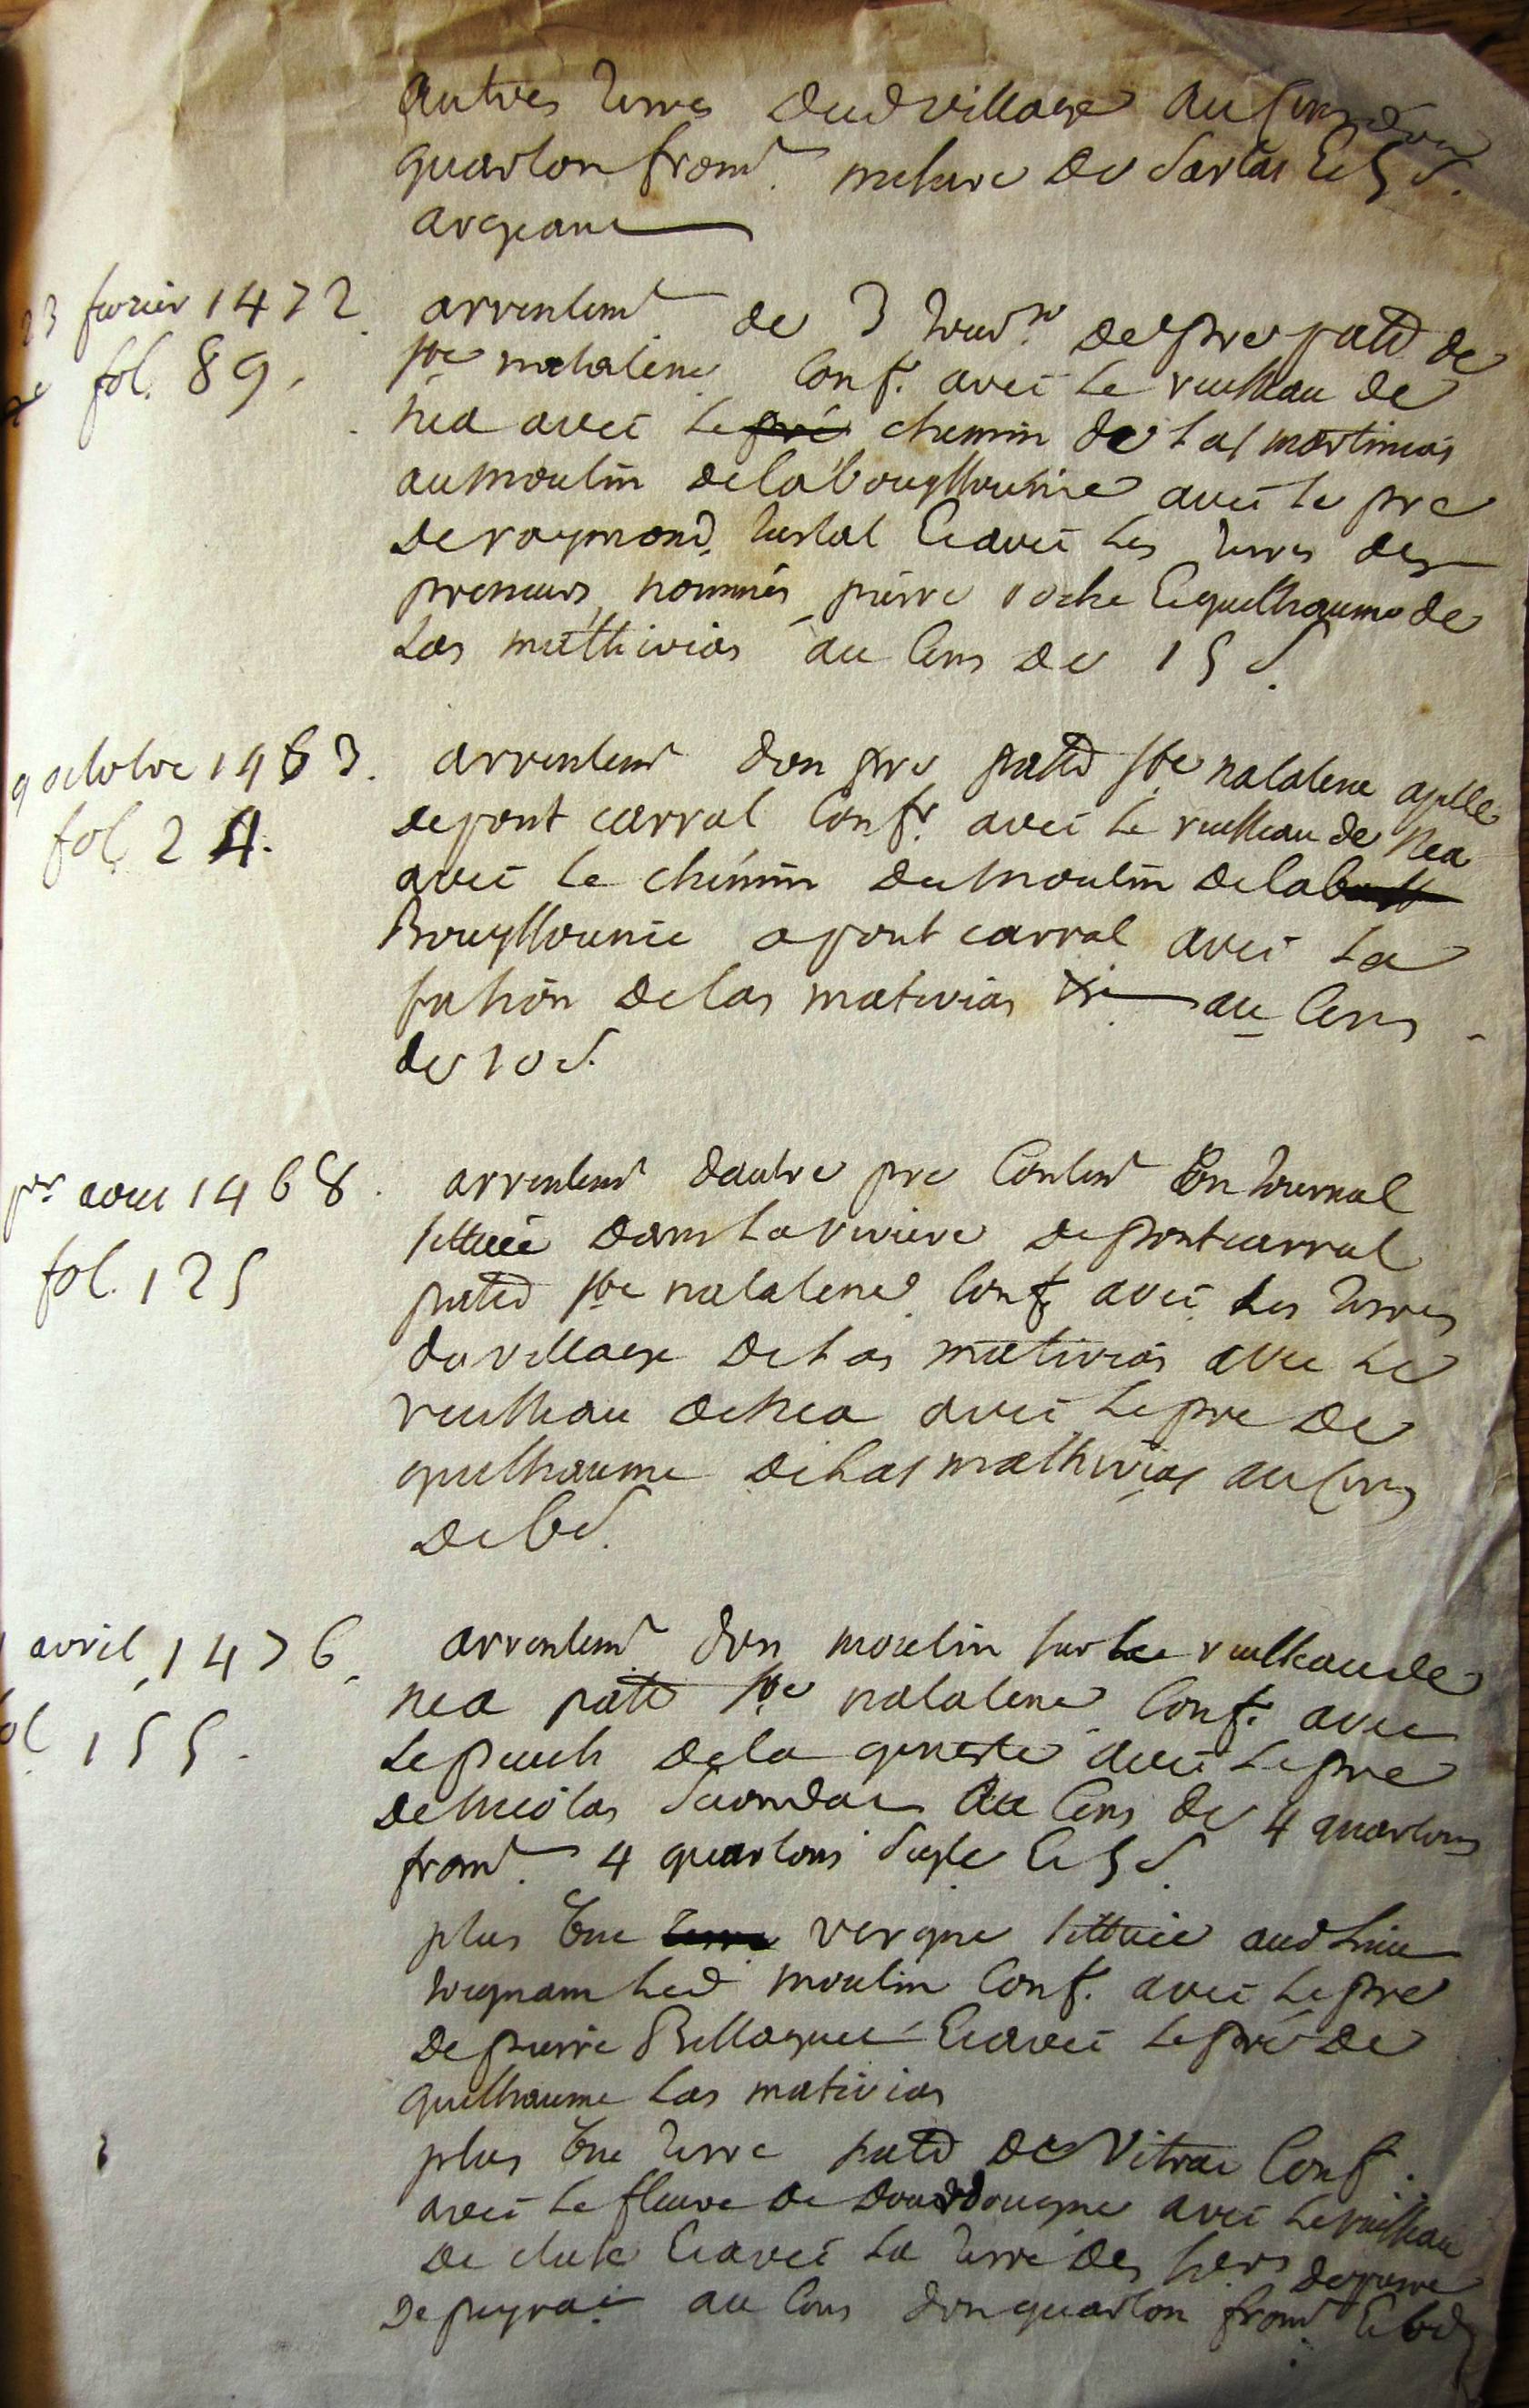 autres terres dud village au cens dun
quarton from.t mesure de Sarlat Et 5 s.
argeant
23 fevrier 1472.
fol. 89.
arrentem.t de 3 journ. de pre parr.d de
s.te nathalene conf. avec le ruisseau de
nea avec le pré chemin de Las mativias
au moulin de la bouyssounie avec le pre
de raymond Et avec les terres des
preneurs nommés pierre roche Et guilhaume de
Las mathivias au cens de 15 s.
9 octobre 1463.
fol. 24.
arrentem.t d'un pre parr.d s.te natalene apelle
de pont carral conf.t avec le ruisseau de Nea
avec le chemin du moulin de la
Bouyssounie a pont carral avec la
de las mativias au cens
de 10 s.
p.er aout 1468.
fol. 125
arrentem.t dautre pre contem.t un journal
sittuée dans la riviere de pont carral
parr.d s.te natalene conf. avec les terres
du village de Las mativias avec le
ruisseau de nea avec le pre de
guilhaume de Las mathivias au cens
de 6 d.
avril 1476.
fol. 155.
arrentem.t d'un moulin sur le ruisseau de
nea parr. s.te natalene conf. avec
le puech de la geneste avec le pre
de nicolas au cens de 4 quartons
from.t 4 quartons segle Et 5 s.
plus une terre vergne sittuée aud lieu
joignant led moulin conf. avec le pre
de pierre Et avec le pré de
guilhaume las mativias
plus une terre parr.d de Vitrac conf.
avec le fleuve de dourdougne avec le ruisseau
de Et avec la terre des hers de pierre
de peyrac au cens d'un quarton from.t Et 6 d